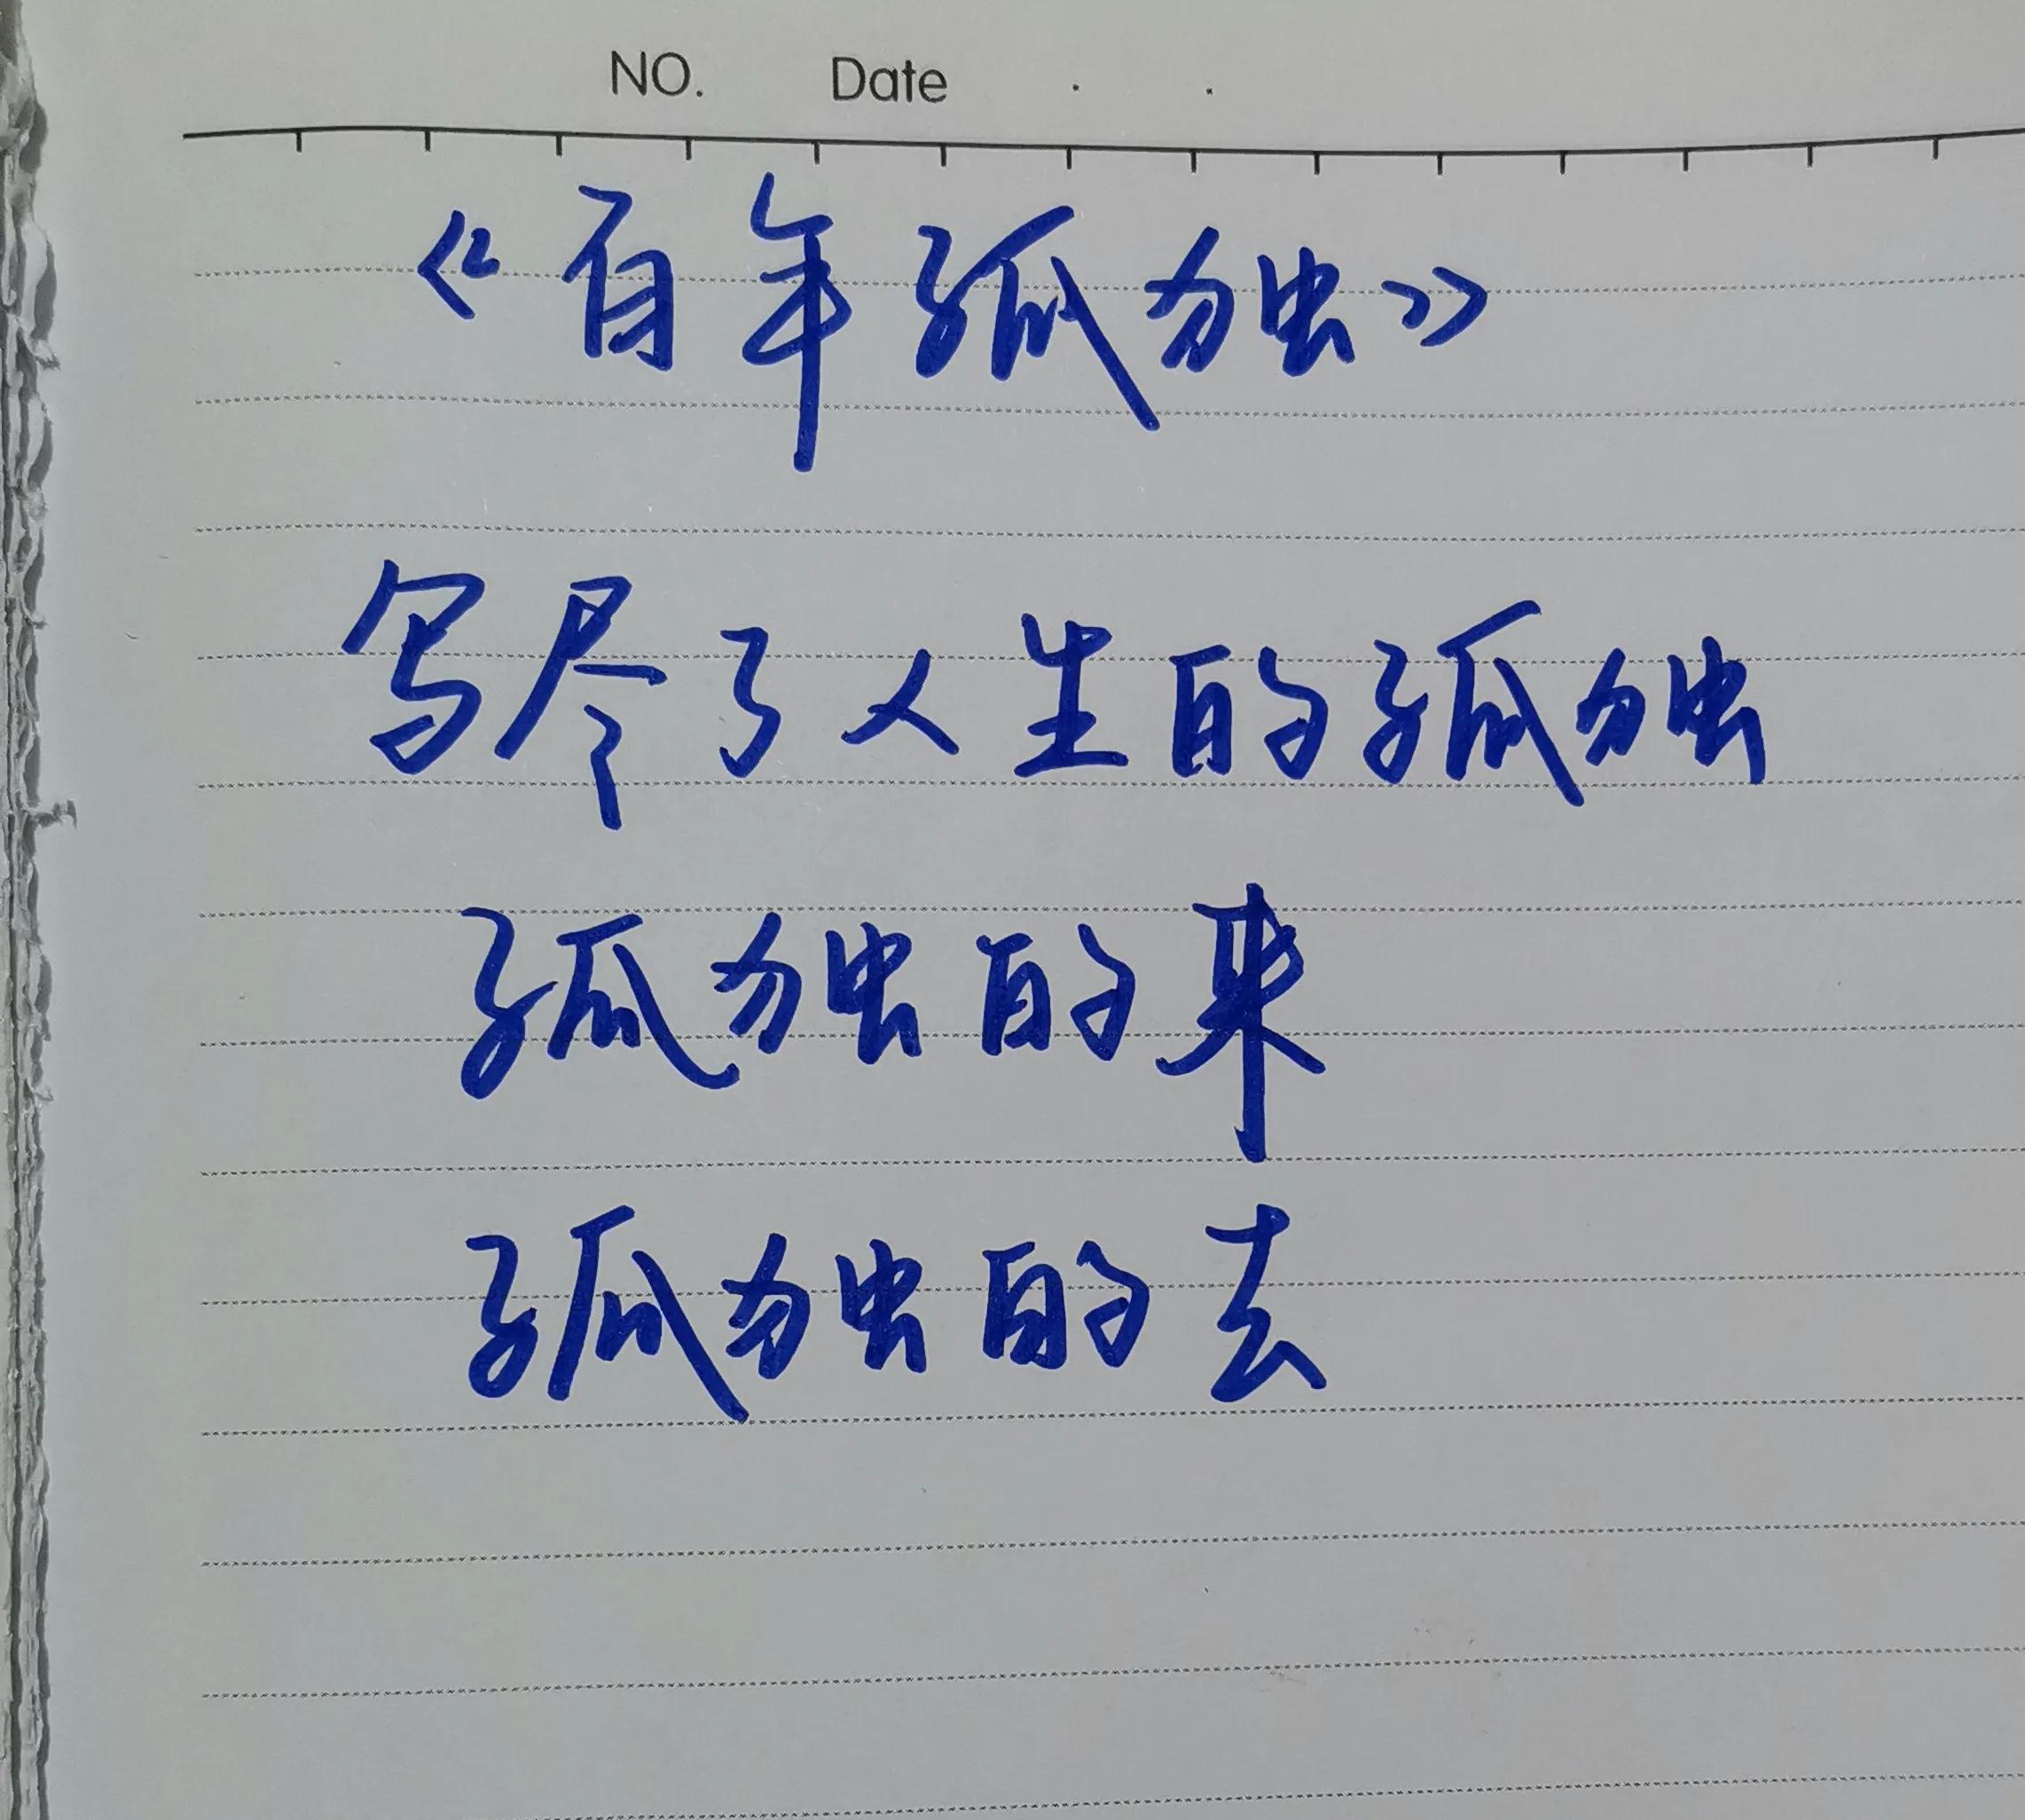 NO. Date . .
《百年孤独》
写尽了人生的孤独
孤独的来
孤独的去